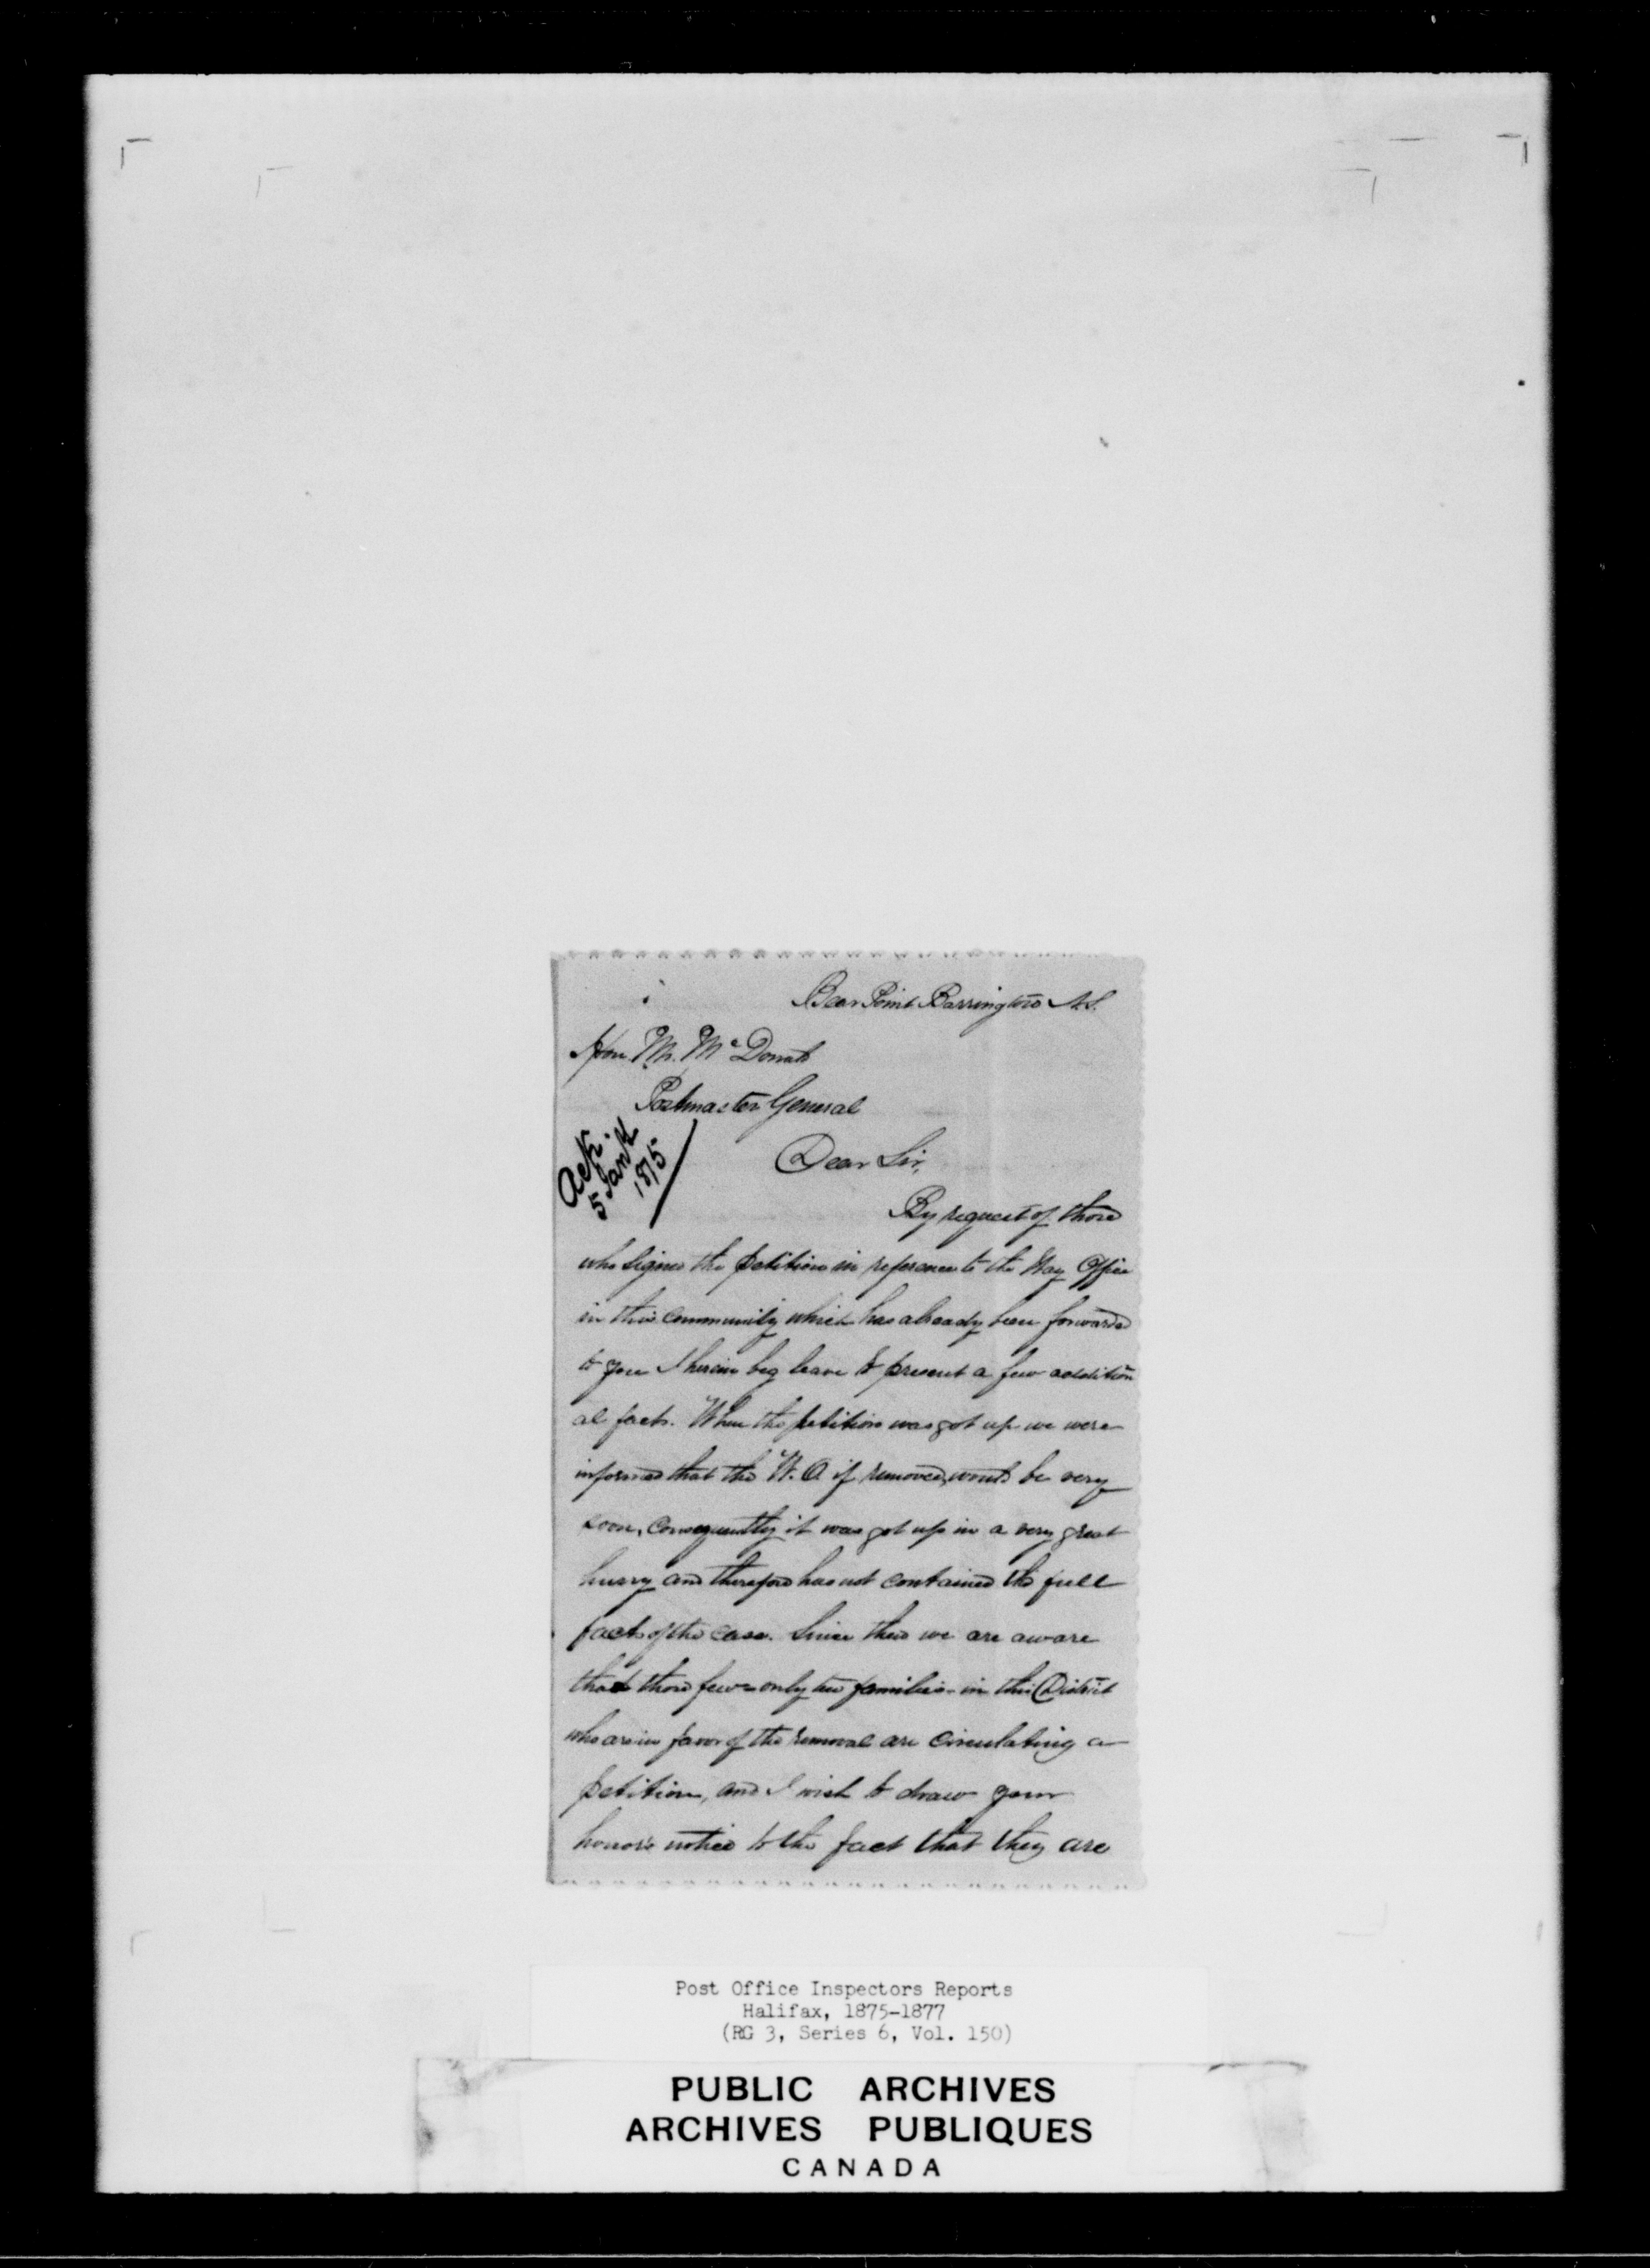 Bear Point Barrington N.S.
Hon. Mr. McDonald
Postmaster General
Ack.
5 Jany
1875
Dear Sir,
By request of those
who signed the petition in reference to the Way Office
in this community which has already been forwarded
to you I herein beg leave to present a few addition
al facts. When the petition was got up we were
informed that the W.O. if removed, would be very
soon, consequently it was got up in a very great
hurry and therefore has not contained the full
facts of the case. Since then we are aware
that those few - only families - in this District
who are in favor of the removal are circulating a
petition, and I wish to draw your
honor's notice to the fact that they are
Post Office Inspectors Reports
Halifax, 1875-1877
(RG 3, Series 6, Vol. 150)
PUBLIC ARCHIVES
ARCHIVES PUBLIQUES
CANADA